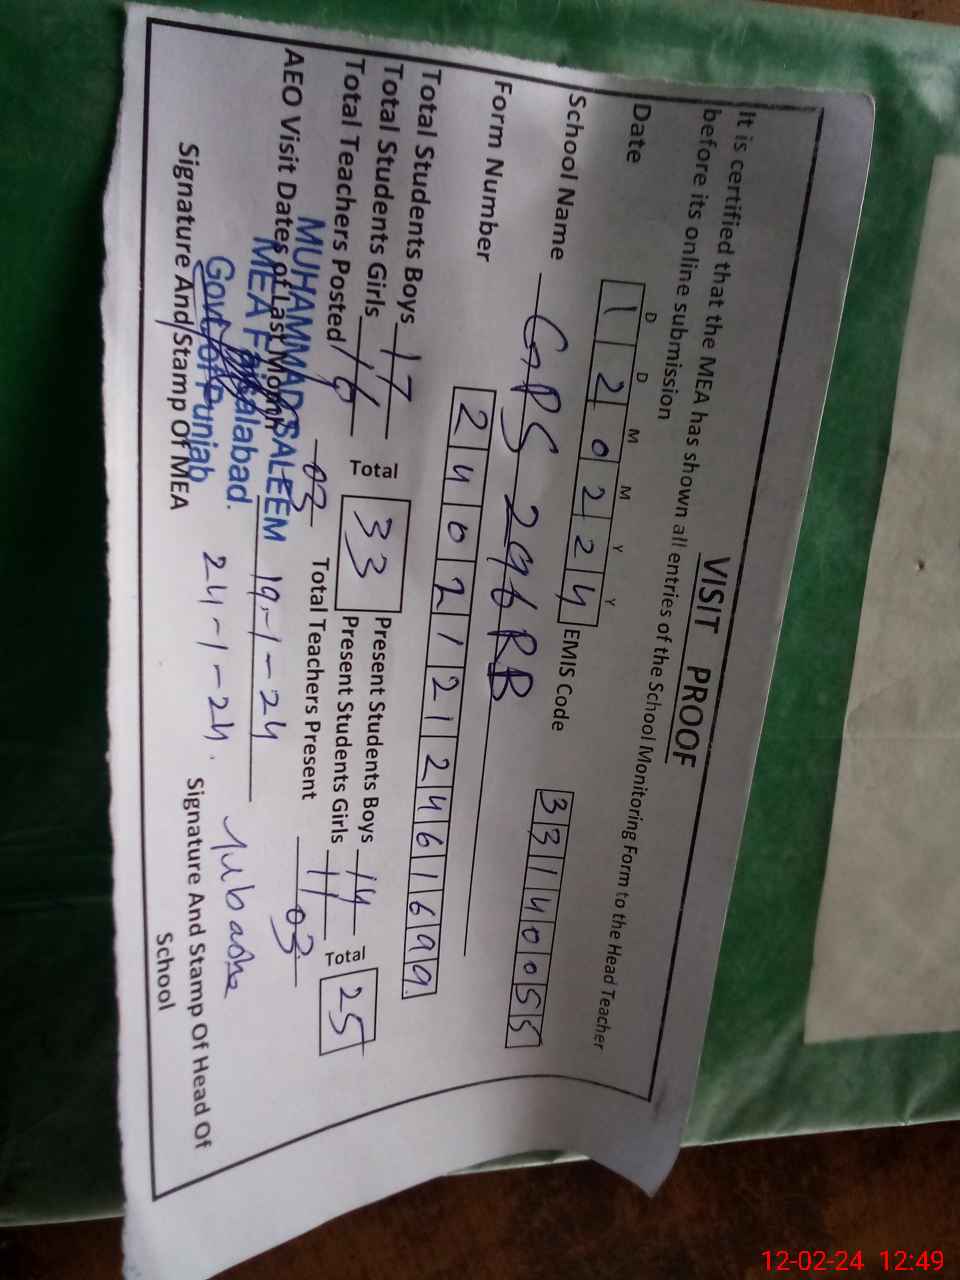 VISIT PROOF
It is certified that the MEA has shown all entries of the School Monitoring Form to the Head Teacher
before its online submission
D D M M Y Y
Date 1 2 0 2 2 4 EMIS Code 3 3 1 4 0 0 5 5
School Name GPS 296 RB
Form Number 2 4 0 2 1 2 1 2 4 6 1 6 9 9
Total Students Boys 17 Total 33 Present Students Boys 14 Total 25
Total Students Girls 16 Present Students Girls 11
Total Teachers Posted 03 Total Teachers Present 03
AEO Visit Dates of Last Month 19-1-24
24-1-24
MUHAMMAD SALEEM
MEA Faisalabad.
Govt of Punjab
Signature And Stamp Of MEA
Signature And Stamp Of Head Of
School
12-02-24 12:49